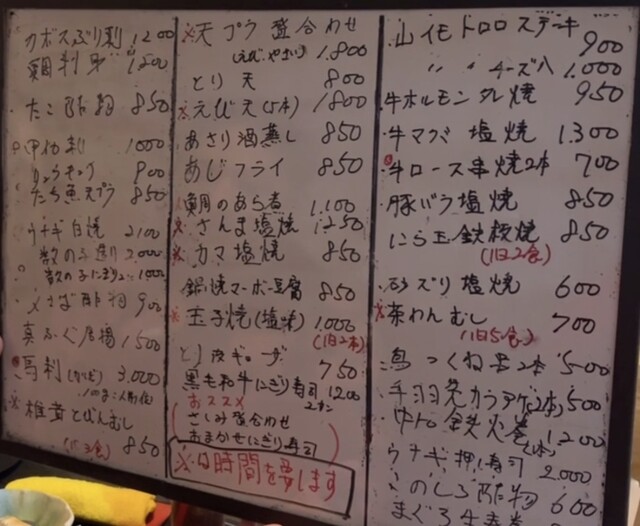 カボスぶり刺 1200
鯛刺身 1200
たこ酢物 850
甲イカ刺 1000
りゅうキュウ 900
たち魚天プラ 850
ウナギ白焼 2100
数の子造り 2,000
数の子にぎり2コ 1000
〆さば酢物 900
真ふぐ唐揚 1500
馬刺 3,000
※椎茸とびんむし
(1日3食) 850
※天プラ盛合わせ
(えび、やさい) 1,800
とり天 800
※えび天(5本) 1800
あさり酒蒸し 850
あじフライ 850
鯛のあら煮 1,100
※さんま塩焼 1250
※カマ塩焼 850
鍋焼マーボー豆腐 850
※玉子焼(塩味) 1,000
(1日2本)
とり皮ギョーザ 750
黒毛和牛にぎり寿司 1200
2コ
おススメ
さしみ盛合わせ
おまかせにぎり寿司
※は時間を要します
山イモトロロステーキ 900
〃 〃 チーズ入 1,000
牛ホルモン丸焼 950
牛マクラ塩焼 1300
牛ロース串焼2本 700
豚バラ塩焼 850
にら玉鉄板焼 850
(1日2食)
砂ズリ塩焼 600
※茶わんむし 700
(1日5食)
鳥つくね串2本 500
手羽先カラアゲ(2本) 500
中トロ鉄火巻 1200
(1本)
ウナギ押し寿司 2.000
このしろ酢物 600
まぐろ